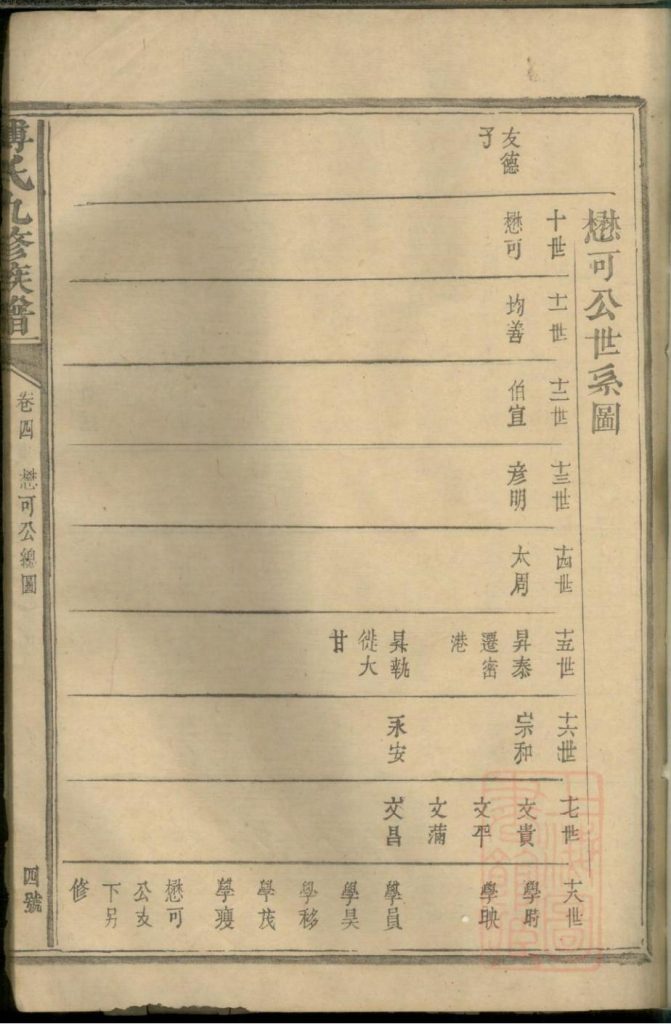 懋可公世系圖
友德
子
十世
懋可
十一世
均善
十二世
伯宜
十三世
彦明
十四世
太周
十五世
昇泰
遷密
港
昇執
徙大
甘
十六世
宗和
永安
十七世
文貴
文平
文蒲
文昌
十八世
學時
學映
學員
學昊
學移
學茂
學瓊
懋可
公支
下另
修
傅氏九修族譜
卷四
懋可公總圖
四號